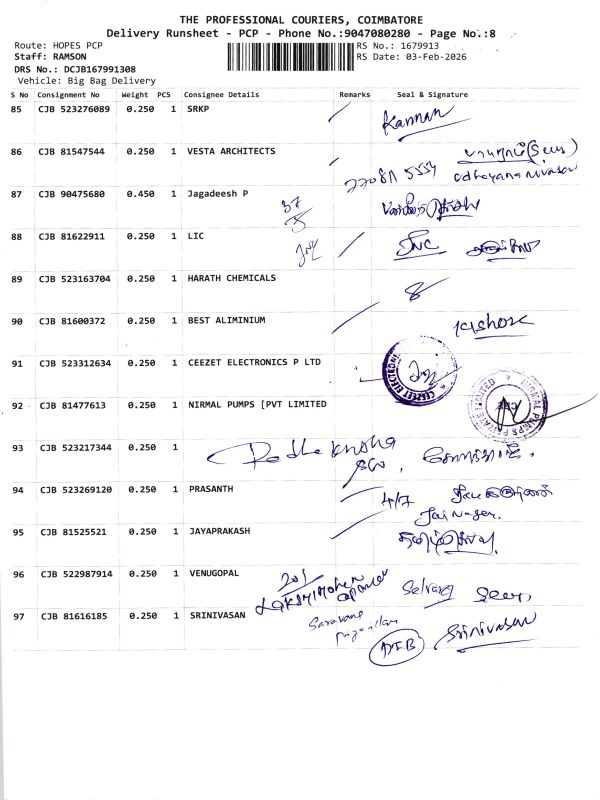 THE PROFESSIONAL COURIERS, COIMBATORE
Delivery Runsheet - PCP - Phone No.:9047080280 - Page No.:8
Route: HOPES PCP
RS No.: 1679913
Staff: RAMSON
RS Date: 03-Feb-2026
DRS No.: DCJB167991308
Vehicle: Big Bag Delivery
S No Consignment No Weight PCS Consignee Details Remarks Seal & Signature
85 CJB 523276089 0.250 1 SRKP
Kannan
86 CJB 81547544 0.250 1 VESTA ARCHITECTS
87 CJB 90475680 0.450 1 Jagadeesh P
37
88 CJB 81622911 0.250 1 LIC
89 CJB 523163704 0.250 1 HARATH CHEMICALS
8
90 CJB 81600372 0.250 1 BEST ALIMINIUM
Kishore
91 CJB 523312634 0.250 1 CEEZET ELECTRONICS P LTD
92 CJB 81477613 0.250 1 NIRMAL PUMPS [PVT LIMITED
93 CJB 523217344 0.250 1
94 CJB 523269120 0.250 1 PRASANTH
4/7
Jai Nagar.
95 CJB 81525521 0.250 1 JAYAPRAKASH
96 CJB 522987914 0.250 1 VENUGOPAL
201
Selvaraj
97 CJB 81616185 0.250 1 SRINIVASAN
Srinivasan